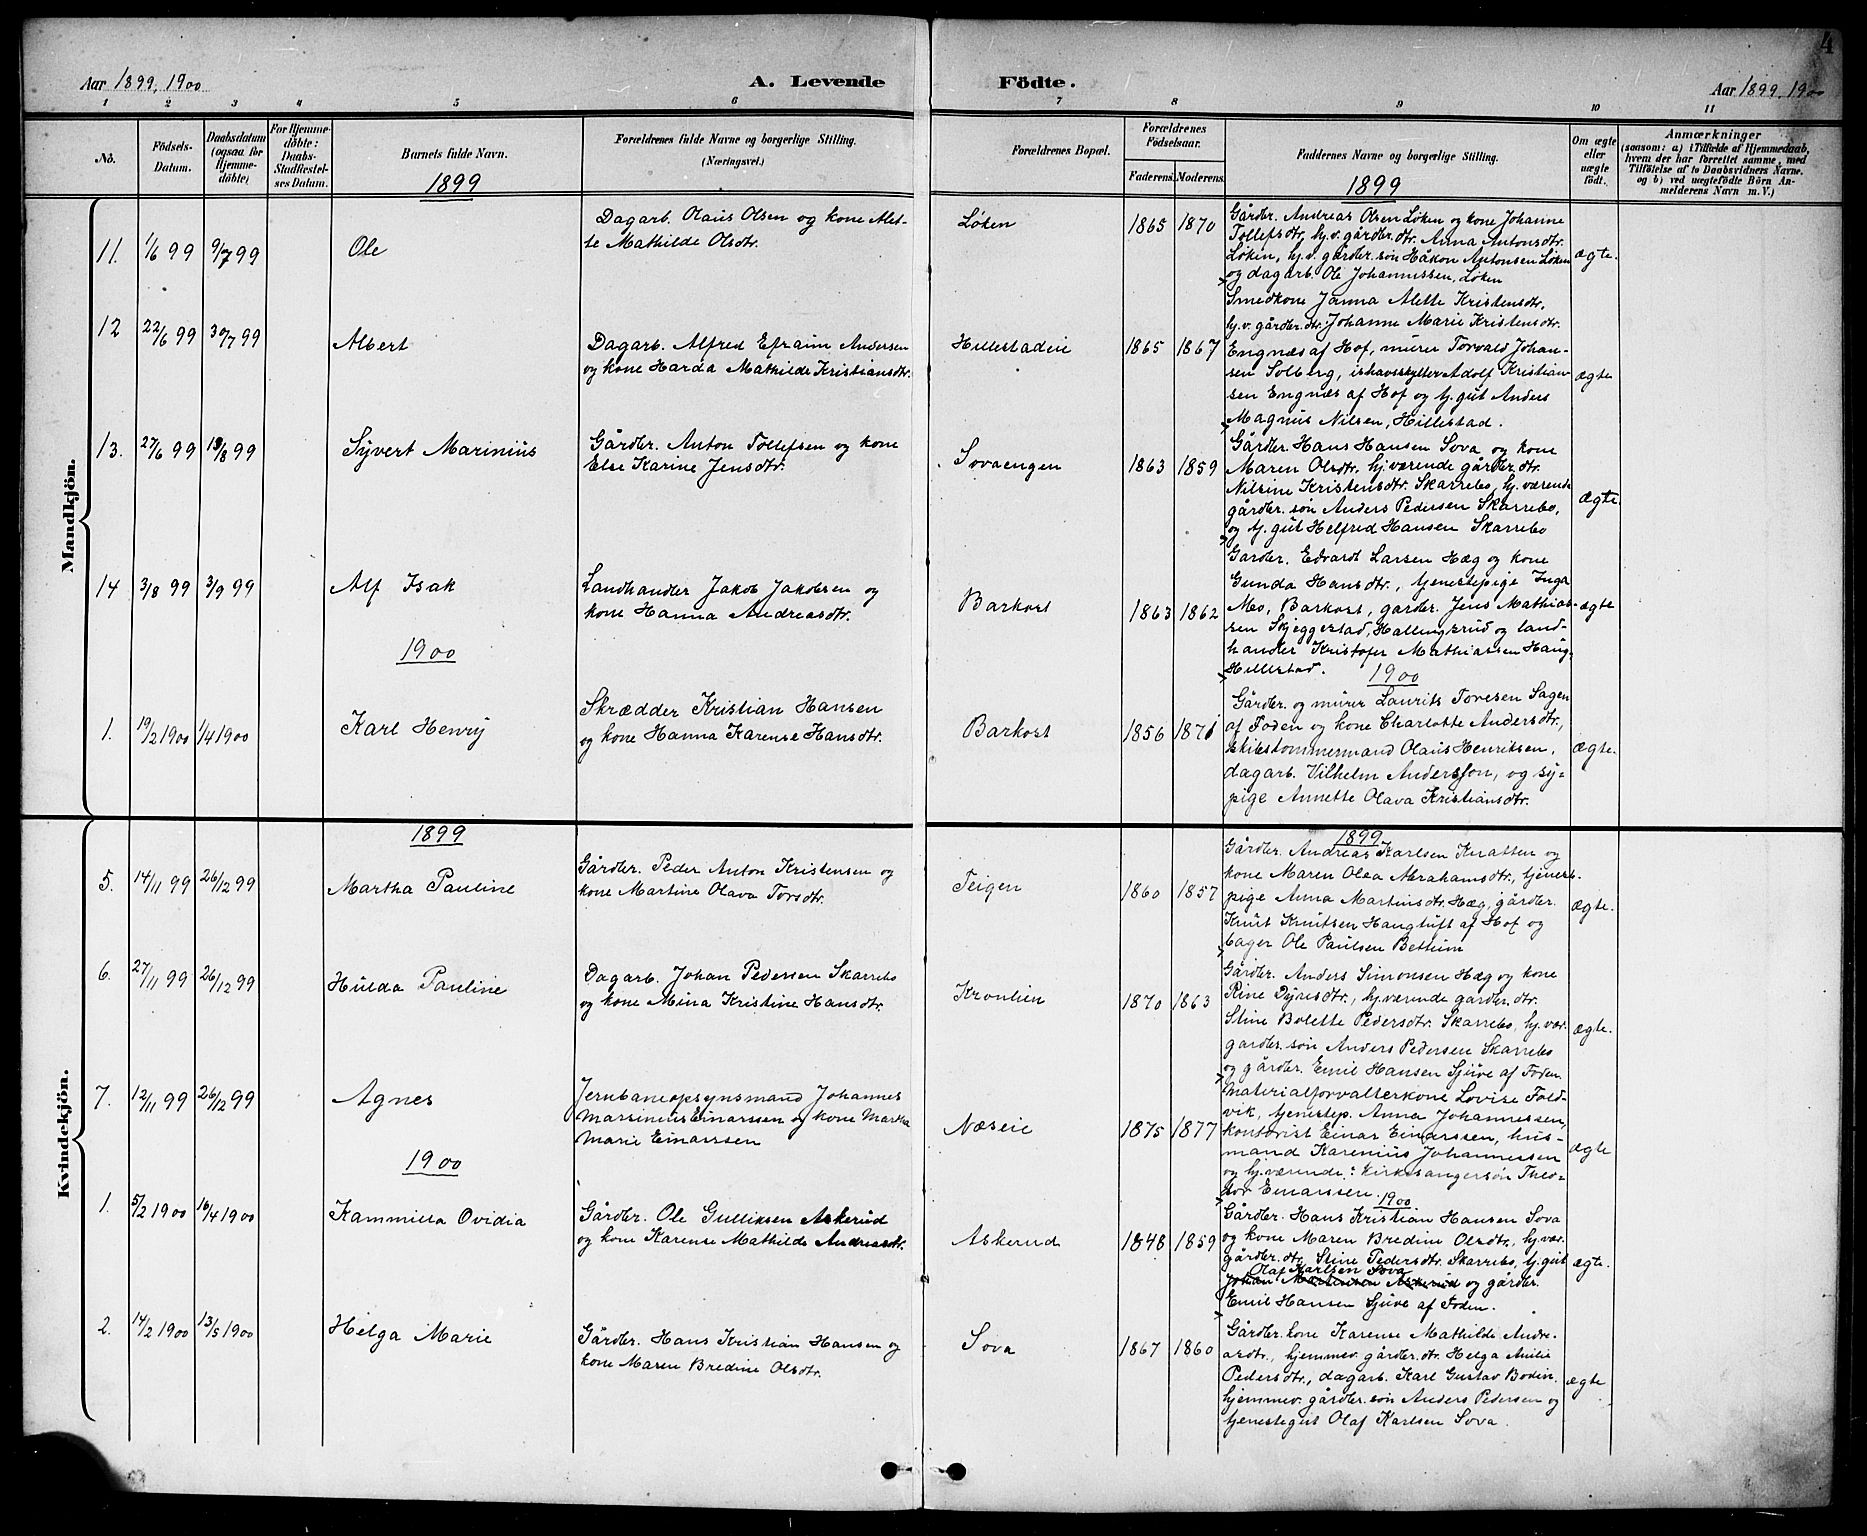 4
Aar 1899, 1900
A. Levende Födte.
Aar 1899, 1900
1 2 3 4 5 6 7 8 9 10 11
No.
Födsels-
Datum.
Daabsdatum
(ogsaa for
Hjemme-
döbte)
For Hjemme-
döbte:
Daabs-
Stadfæstel-
ses Datum.
Barnets fulde Navn.
Forældrenes fulde Navne og borgerlige Stilling.
(Næringsvei.)
Forældrenes Bopæl.
Forældrenes
Födselsaar.
Faderens. Moderens.
Faddernes Navne og borgerlige Stilling.
Om ægte
eller
uægte
födt.
Anmærkninger
(saasom: a) i Tilfælde af Hjemmedaab,
hvem der har forrettet samme, med
Tilföielse af to Daabsvidners Navne.
og b) ved uægtefödte Börn An-
melderens Navn m. V.)
Mandkjön.
1899
1899
11. 1/6 99 9/7 99
Ole
Dagarb. Olaus Olsen og kone Alet-
te Mathilde Olsdtr.
Løken
1865 1870
Gårdbr. Andreas Olsen Løken og kone Johanne
Tollefsdtr, hj.v. gårdbr. dtr. Anna Antonsdtr.
Løken, hj.v. gårdbr. søn Håkon Antonsen Løken
og dagarb. Ole Johannessen, Løken
ægte.
12 22/6 99 30/7 99
Albert
Dagarb. Alfred Efraim Andersen
og kone Harda Mathilde Kristiansdtr.
Hillestadeie
1865 1867
Smedkone Janna Alette Kristensdtr,
hj.v. gårdbr. dtr. Johanne Marie Kristensdtr.
Engnæs af Hof, murer Torvald Johan-
sen Solberg, ishavsskytter Adolf Kristian-
sen Engnæs af Hof og tj. gut Anders
Magnus Nilsen, Hillestad.
ægte
13. 27/6 99 13/8 99
Syvert Marinius
Gårdbr. Anton Tollefsen og kone
Else Karine Jensdtr.
Sovaengen
1863 1859
Gårdbr Hans Hansen Sova og kone
Maren Olsdtr. hj.værende gårdbr. dtr.
Nilsine Kristensdtr. Skarrebo, hj. værende
gårdbr. søn Anders Pedersen Skarrebo,
og tj. gut Helfred Hansen Skarrebo
ægte.
14 3/8 99 3/9 99
Alf Isak
Landhandler Jakob Jakobsen og
kone Hanna Andreasdtr.
Barkost
1863 1862
Gardbr. Edvardt Larsen Hæg og kone
Gunda Hansdtr., tjenestepige Inga
Mo, Barkost, gardbr. Jens Mathias-
sen Skjeggestad, Hallingsrud og land-
handler Kristofer Mathiassen Haug,
Hillestad.
ægte
1900
1900
1. 19/2 1900 1/4 1900
Karl Henry
Skrædder Kristian Hansen
og kone Hanna Karense Hansdtr.
Barkost
1856 1871
Gårdbr. og murer Laurits Toresen Sagen
af Foden og kone Charlotte Andersdtr,
skibstømmermand Olaus Henriksen,
dagarb. Vilhelm Andersson, og sy-
pige Annette Olava Kristiansdtr.
ægte.
Kvindekjön.
1899
1899
5. 14/11 99 26/12 99
Martha Pauline
Gårdbr. Peder Anton Kristensen og
kone Martine Olava Torsdtr.
Teigen
1860 1857
Gårdbr. Andreas Karlsen Knatten og
kone Maren Olea Abrahamsdtr., tjenest-
pige Anna Martinsdtr. Hæg, gårdbr.
Knut Knutsen Haugtuft af Hof og
bager Ole Paulsen Bettum
ægte.
6. 27/11 99 26/12 99
Hulda Pauline
Dagarb. Johan Pedersen Skarrebo
og kone Mina Kristine Hansdtr.
Kronlien
1870 1863
Gårdbr. Anders Simonsen Hæg og kone
Rine Dyresdtr., hj.værende gårdbr. dtr.
Stine Bolette Pedersdtr. Skarrebo, hj. vær.
gardbr. søn Anders Pedersen Skarrebo
og gårdbr. Emil Hansen Sjuve af Foden.
ægte.
7. 12/11 99 26/12 99
Agnes
Jernbaneopsynsmand Johannes
Marsinius Einarssen og kone Martha
Marie Einarssen
Næseie
1875 1877
Materialforvalterkone Lovise Fold-
vik, tjenestep. Anna Johannessen,
kontorist Einar Einarssen, hus-
mand Karenius Johannessen
og hj.værende: kirkesangersøn Theo-
dor Einarssen.
ægte
1900
1900
1. 5/2 1900 16/4 1900
Kammilla Ovidia
Gårdbr. Ole Gulliksen Askerud
og kone Karense Mathilde Andreasdtr.
Askerud
1848 1859
Gårdbr. Hans Kristian Hansen Sova
og kone Maren Bredine Olsdtr, hj.vær.
gårdbr. dtr. Stine Pedersdtr. Skarrebo, tj. gut
Olaf Karlsen Sova
Johan Martinsen Askerud og gårdbr.
Emil Hansen Sjuve af Foden.
ægte.
2. 14/2 1900 13/5 1900
Helga Marie
Gårdbr. Hans Kristian Hansen og
kone Maren Bredine Olsdtr.
Sova
1867 1860
Gårdbr. kone Karense Mathilde Andre-
asdtr., hjemmev. gårdbr. dtr. Helga Amlie
Pedersdtr., dagarb. Karl Gustav Bodin.
hjemmev. gårdbr. søn Anders Pedersen og
tjenestegut Olaf Karlsen Sova.
ægte